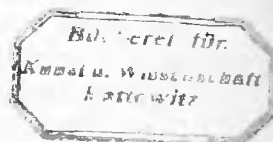 Bücherei für
Kunst u. Wissenschaft
Kattowitz